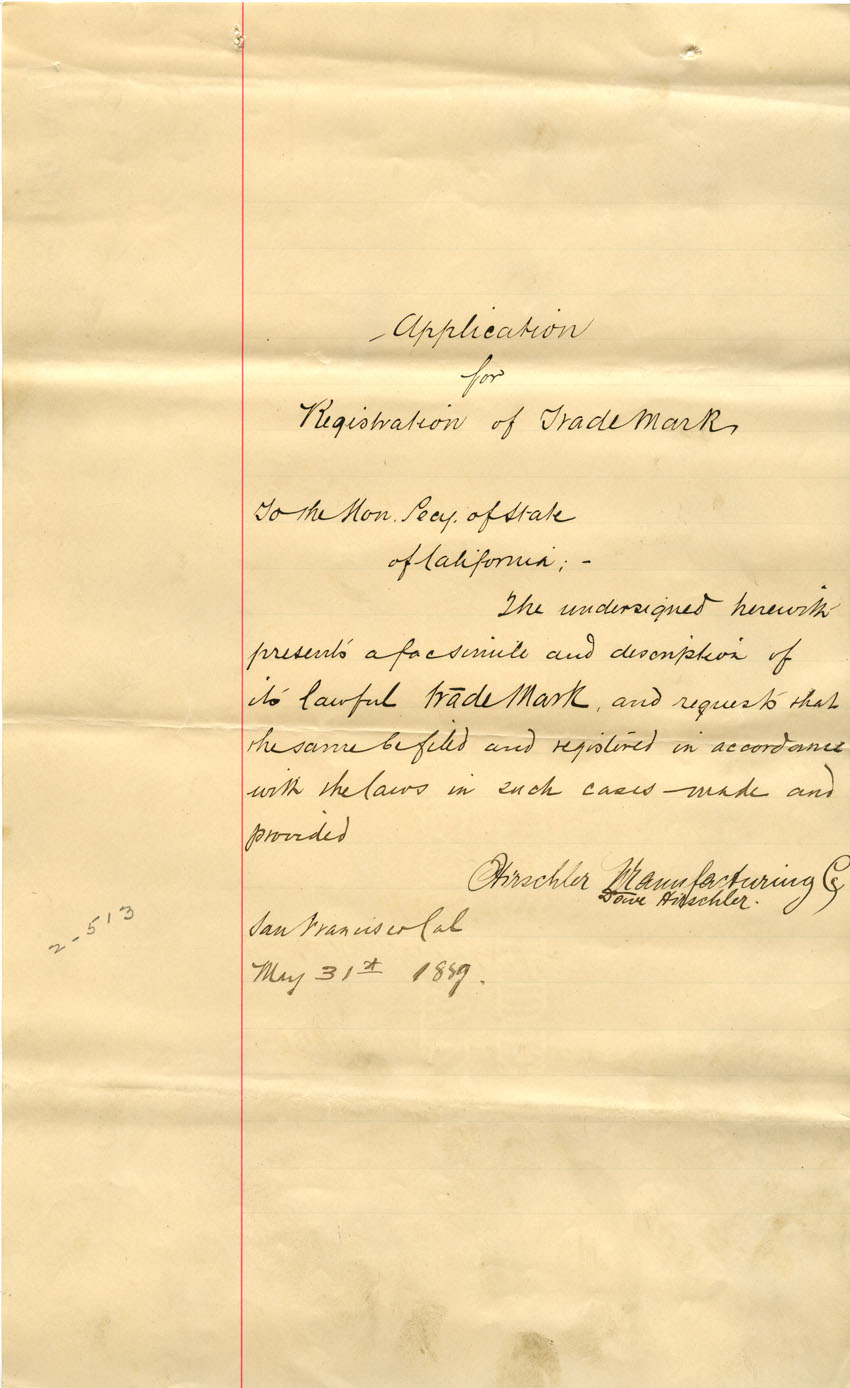 Application
for
Registration of Trade Mark
To the Hon. Secy. of State
of California; -
The undersigned herewith
presents a facsimile and description of
its lawful trade Mark, and requests that
the same be filed and registered in accordance
with the laws in such cases made and
provided
Hirschler Manufacturing Co
Hirschler.
San Francisco Cal
2-513
May 31st 1889.